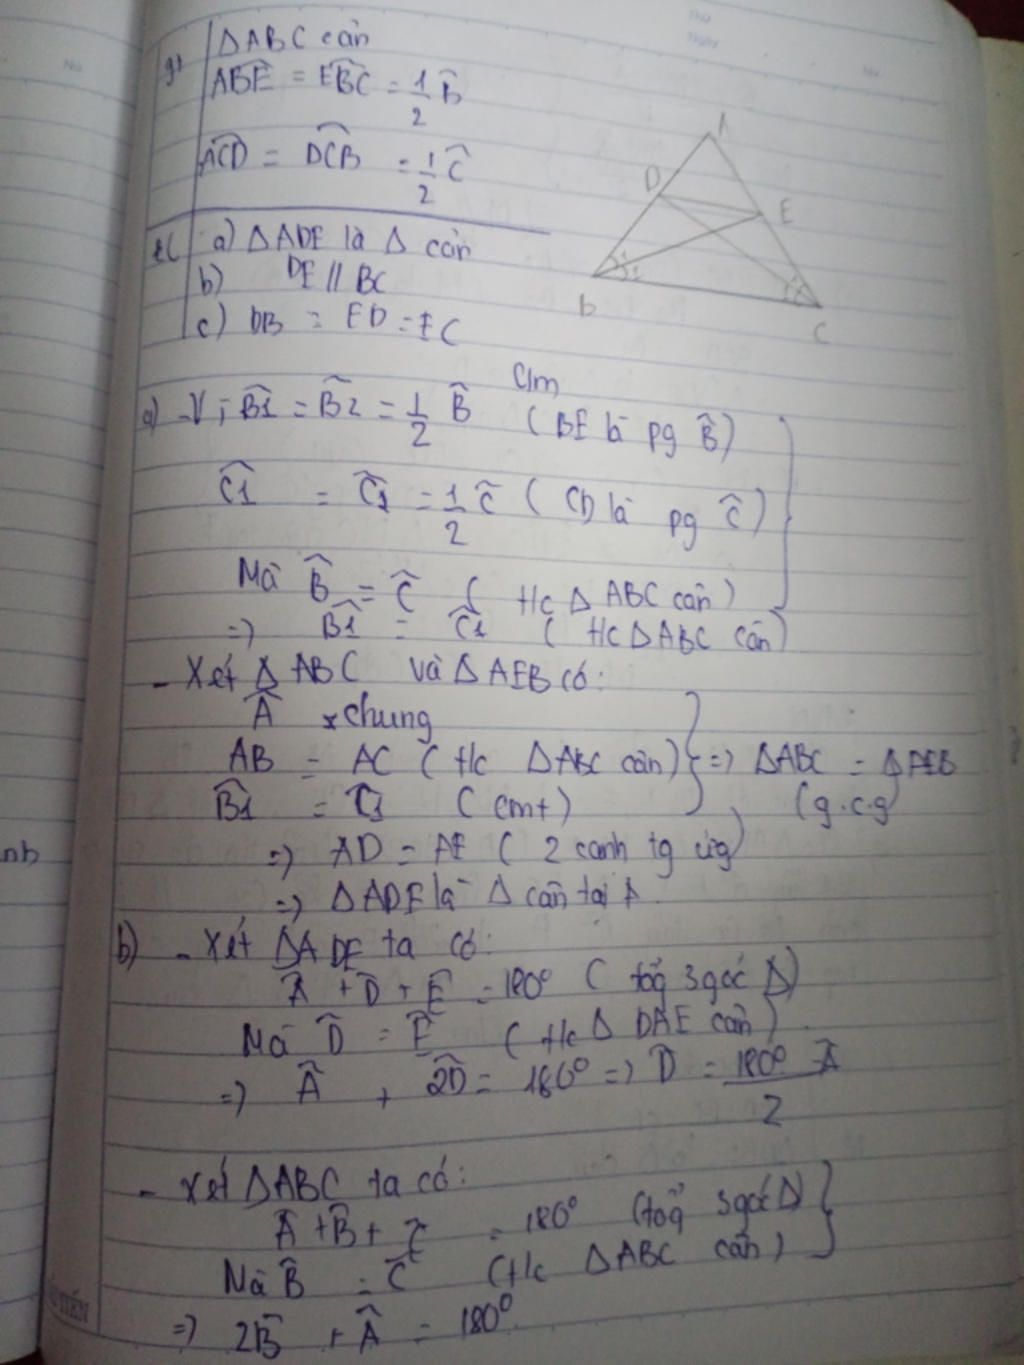 gt
ΔABC cân
ABE = EBC = 1/2 B
ACD = DCB = 1/2 C
A
D
E
B
C
a) ΔADE là Δ cân
b) DE // BC
c) DB = ED = EC
Cm
a) - Vì B1 = B2 = 1/2 B (BE là pg B)
C1 = C2 = 1/2 C (CD là pg C)
Mà B = C (t/c ΔABC cân)
=> B1 = C1 (t/c ΔABC cân)
- Xét ΔABC và ΔAEB có:
A chung
AB = AC (t/c ΔABC cân) => ΔABC = ΔAEB
B1 = C1 (cmt) (g.c.g)
=> AD = AE (2 cạnh tg ứg)
=> ΔADE là Δ cân tại A.
b) - Xét ΔADE ta có:
A + D + E = 180° (tổg 3 góc Δ)
Mà D = E (t/c Δ DAE cân)
=> A + 2D = 180° => D = 180° - A / 2
- Xét ΔABC ta có:
A + B + C = 180° (tổg 3 góc Δ)
Mà B = C (t/c ΔABC cân)
=> 2B + A = 180°